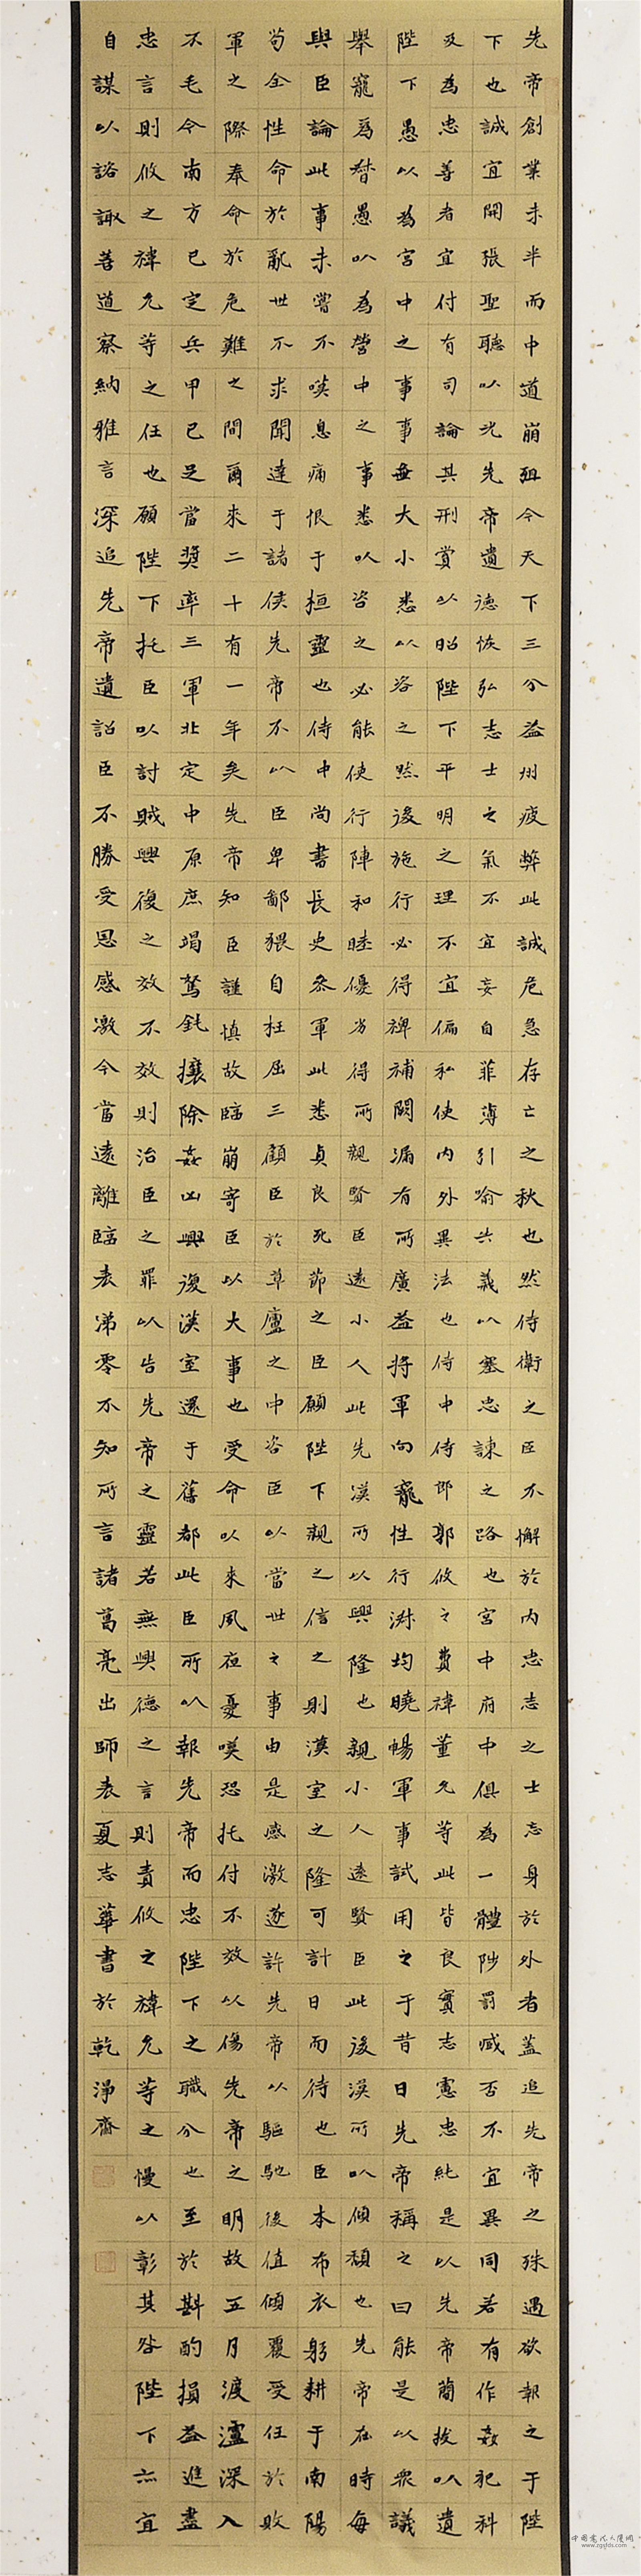 先帝創業未半而中道崩殂今天下三分益州疲弊此誠危急存亡之秋也然侍衛之臣不懈於内忠志之士忘身於外者蓋追先帝之殊遇欲報之于陛
下也誠宜開張聖聽以光先帝遺德恢弘志士之氣不宜妄自菲薄引喻失義以塞忠諫之路也宮中府中俱為一體陟罰臧否不宜異同若有作姦犯科
及為忠善者宜付有司論其刑賞以昭陛下平明之理不宜偏私使内外異法也侍中侍郎郭攸之費禕董允等此皆良實志慮忠純是以先帝簡拔以遺
陛下愚以為宮中之事事無大小悉以咨之然後施行必得裨補闕漏有所廣益將軍向寵性行淑均曉暢軍事試用之于昔日先帝稱之曰能是以眾議
舉寵為督愚以為營中之事悉以咨之必能使行陣和睦優劣得所親賢臣遠小人此先漢所以興隆也親小人遠賢臣此後漢所以傾頹也先帝在時每
與臣論此事未嘗不嘆息痛恨于桓靈也侍中尚書長史參軍此悉貞良死節之臣願陛下親之信之則漢室之隆可計日而待也臣本布衣躬耕于南陽
苟全性命於亂世不求聞達于諸侯先帝不以臣卑鄙猥自枉屈三顧臣於草廬之中咨臣以當世之事由是感激遂許先帝以驅馳後值傾覆受任於敗
軍之際奉命於危難之間爾來二十有一年矣先帝知臣謹慎故臨崩寄臣以大事也受命以來夙夜憂嘆恐托付不效以傷先帝之明故五月渡瀘深入
不毛今南方已定兵甲已足當獎率三軍北定中原庶竭駑鈍攘除姦凶興復漢室還于舊都此臣所以報先帝而忠陛下之職分也至於斟酌損益進盡
忠言則攸之禕允等之任也願陛下托臣以討賊興復之效不效則治臣之罪以告先帝之靈若無興德之言則責攸之禕允等之慢以彰其咎陛下亦宜
自謀以諮諏善道察納雅言深追先帝遺詔臣不勝受恩感激今當遠離臨表涕零不知所言諸葛亮出師表夏志華書於乾淨齋